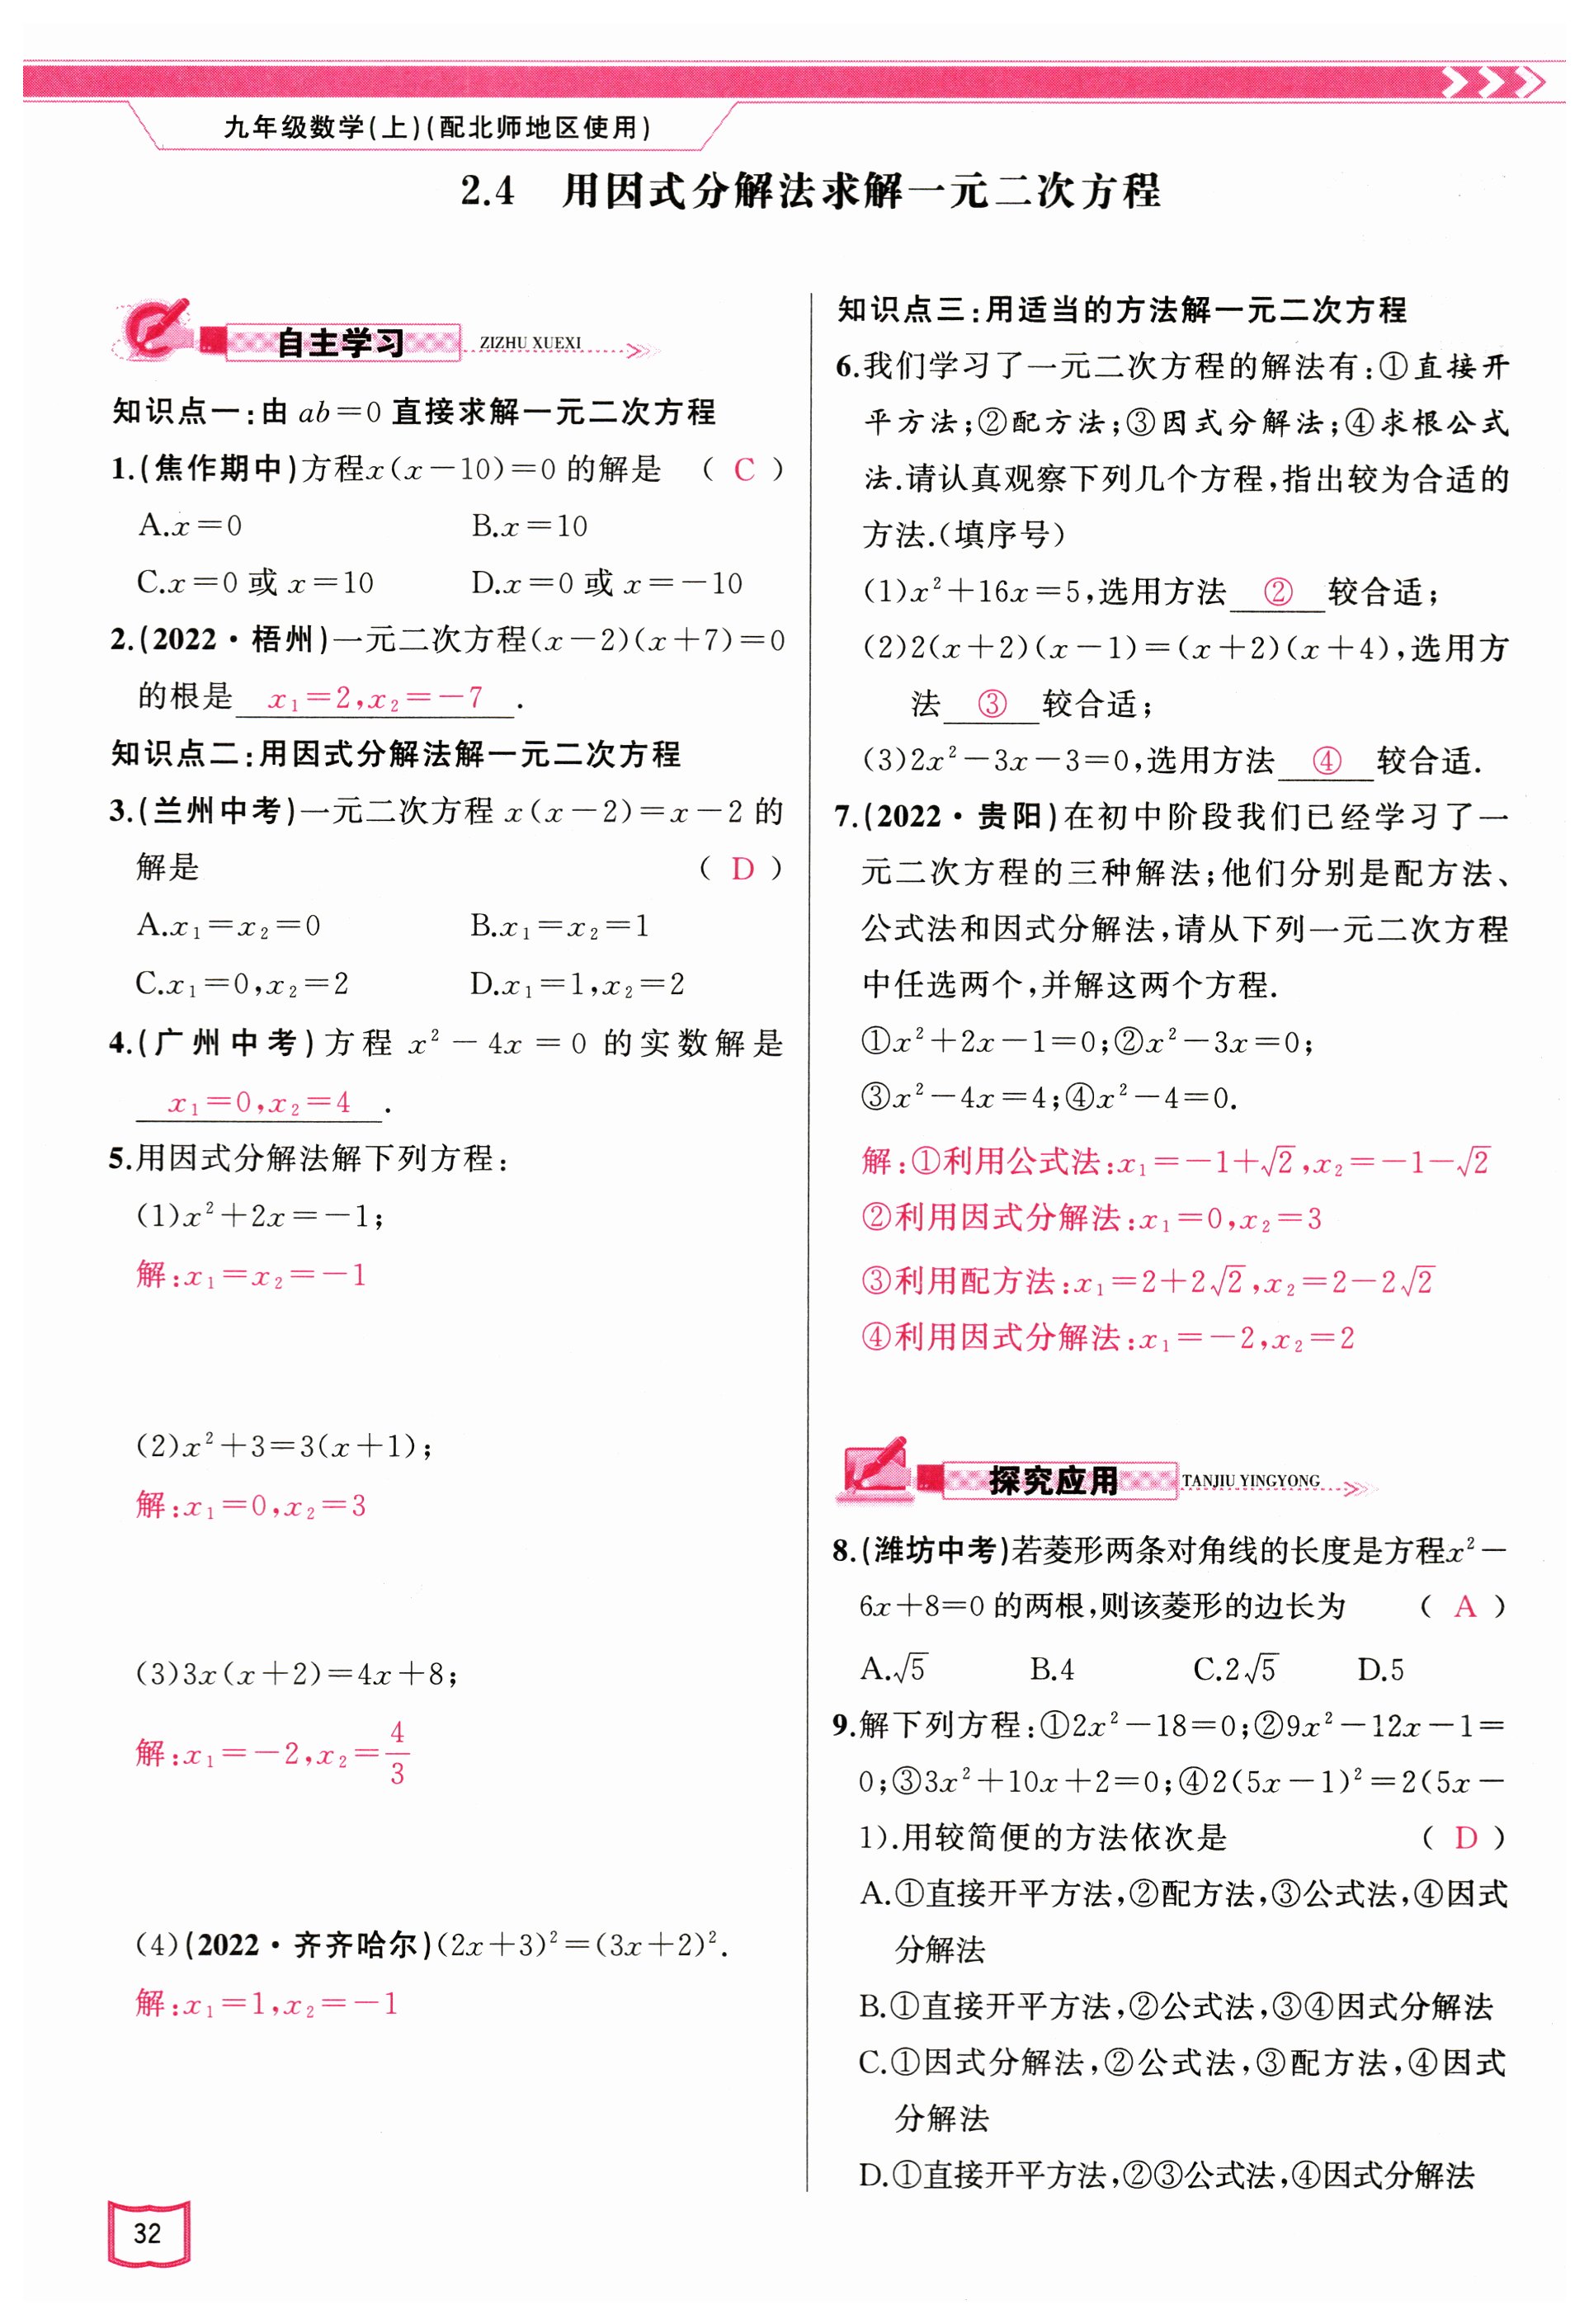 九年级数学(上)(配北师地区使用)
2.4 用因式分解法求解一元二次方程
自主学习 ZIZHU XUEXI
知识点一:由 ab=0 直接求解一元二次方程
1.(焦作期中)方程x(x-10)=0 的解是 ( C )
A.x=0 B.x=10
C.x=0 或 x=10 D.x=0 或 x=-10
2.(2022·梧州)一元二次方程(x-2)(x+7)=0
的根是 x₁=2,x₂=-7 .
知识点二:用因式分解法解一元二次方程
3.(兰州中考)一元二次方程 x(x-2)=x-2 的
解是 ( D )
A.x₁=x₂=0 B.x₁=x₂=1
C.x₁=0,x₂=2 D.x₁=1,x₂=2
4.(广州中考)方程 x²-4x=0 的实数解是
x₁=0,x₂=4 .
5.用因式分解法解下列方程:
(1)x²+2x=-1;
解:x₁=x₂=-1
(2)x²+3=3(x+1);
解:x₁=0,x₂=3
(3)3x(x+2)=4x+8;
解:x₁=-2,x₂=4/3
(4)(2022·齐齐哈尔)(2x+3)²=(3x+2)².
解:x₁=1,x₂=-1
32
知识点三:用适当的方法解一元二次方程
6.我们学习了一元二次方程的解法有:①直接开
平方法;②配方法;③因式分解法;④求根公式
法.请认真观察下列几个方程,指出较为合适的
方法.(填序号)
(1)x²+16x=5,选用方法 ② 较合适;
(2)2(x+2)(x-1)=(x+2)(x+4),选用方
法 ③ 较合适;
(3)2x²-3x-3=0,选用方法 ④ 较合适.
7.(2022·贵阳)在初中阶段我们已经学习了一
元二次方程的三种解法;他们分别是配方法、
公式法和因式分解法,请从下列一元二次方程
中任选两个,并解这两个方程.
①x²+2x-1=0;②x²-3x=0;
③x²-4x=4;④x²-4=0.
解:①利用公式法:x₁=-1+√2,x₂=-1-√2
②利用因式分解法:x₁=0,x₂=3
③利用配方法:x₁=2+2√2,x₂=2-2√2
④利用因式分解法:x₁=-2,x₂=2
探究应用 TANJIU YINGYONG
8.(潍坊中考)若菱形两条对角线的长度是方程x²-
6x+8=0 的两根,则该菱形的边长为 ( A )
A.√5 B.4 C.2√5 D.5
9.解下列方程:①2x²-18=0;②9x²-12x-1=
0;③3x²+10x+2=0;④2(5x-1)²=2(5x-
1).用较简便的方法依次是 ( D )
A.①直接开平方法,②配方法,③公式法,④因式
分解法
B.①直接开平方法,②公式法,③④因式分解法
C.①因式分解法,②公式法,③配方法,④因式
分解法
D.①直接开平方法,②③公式法,④因式分解法